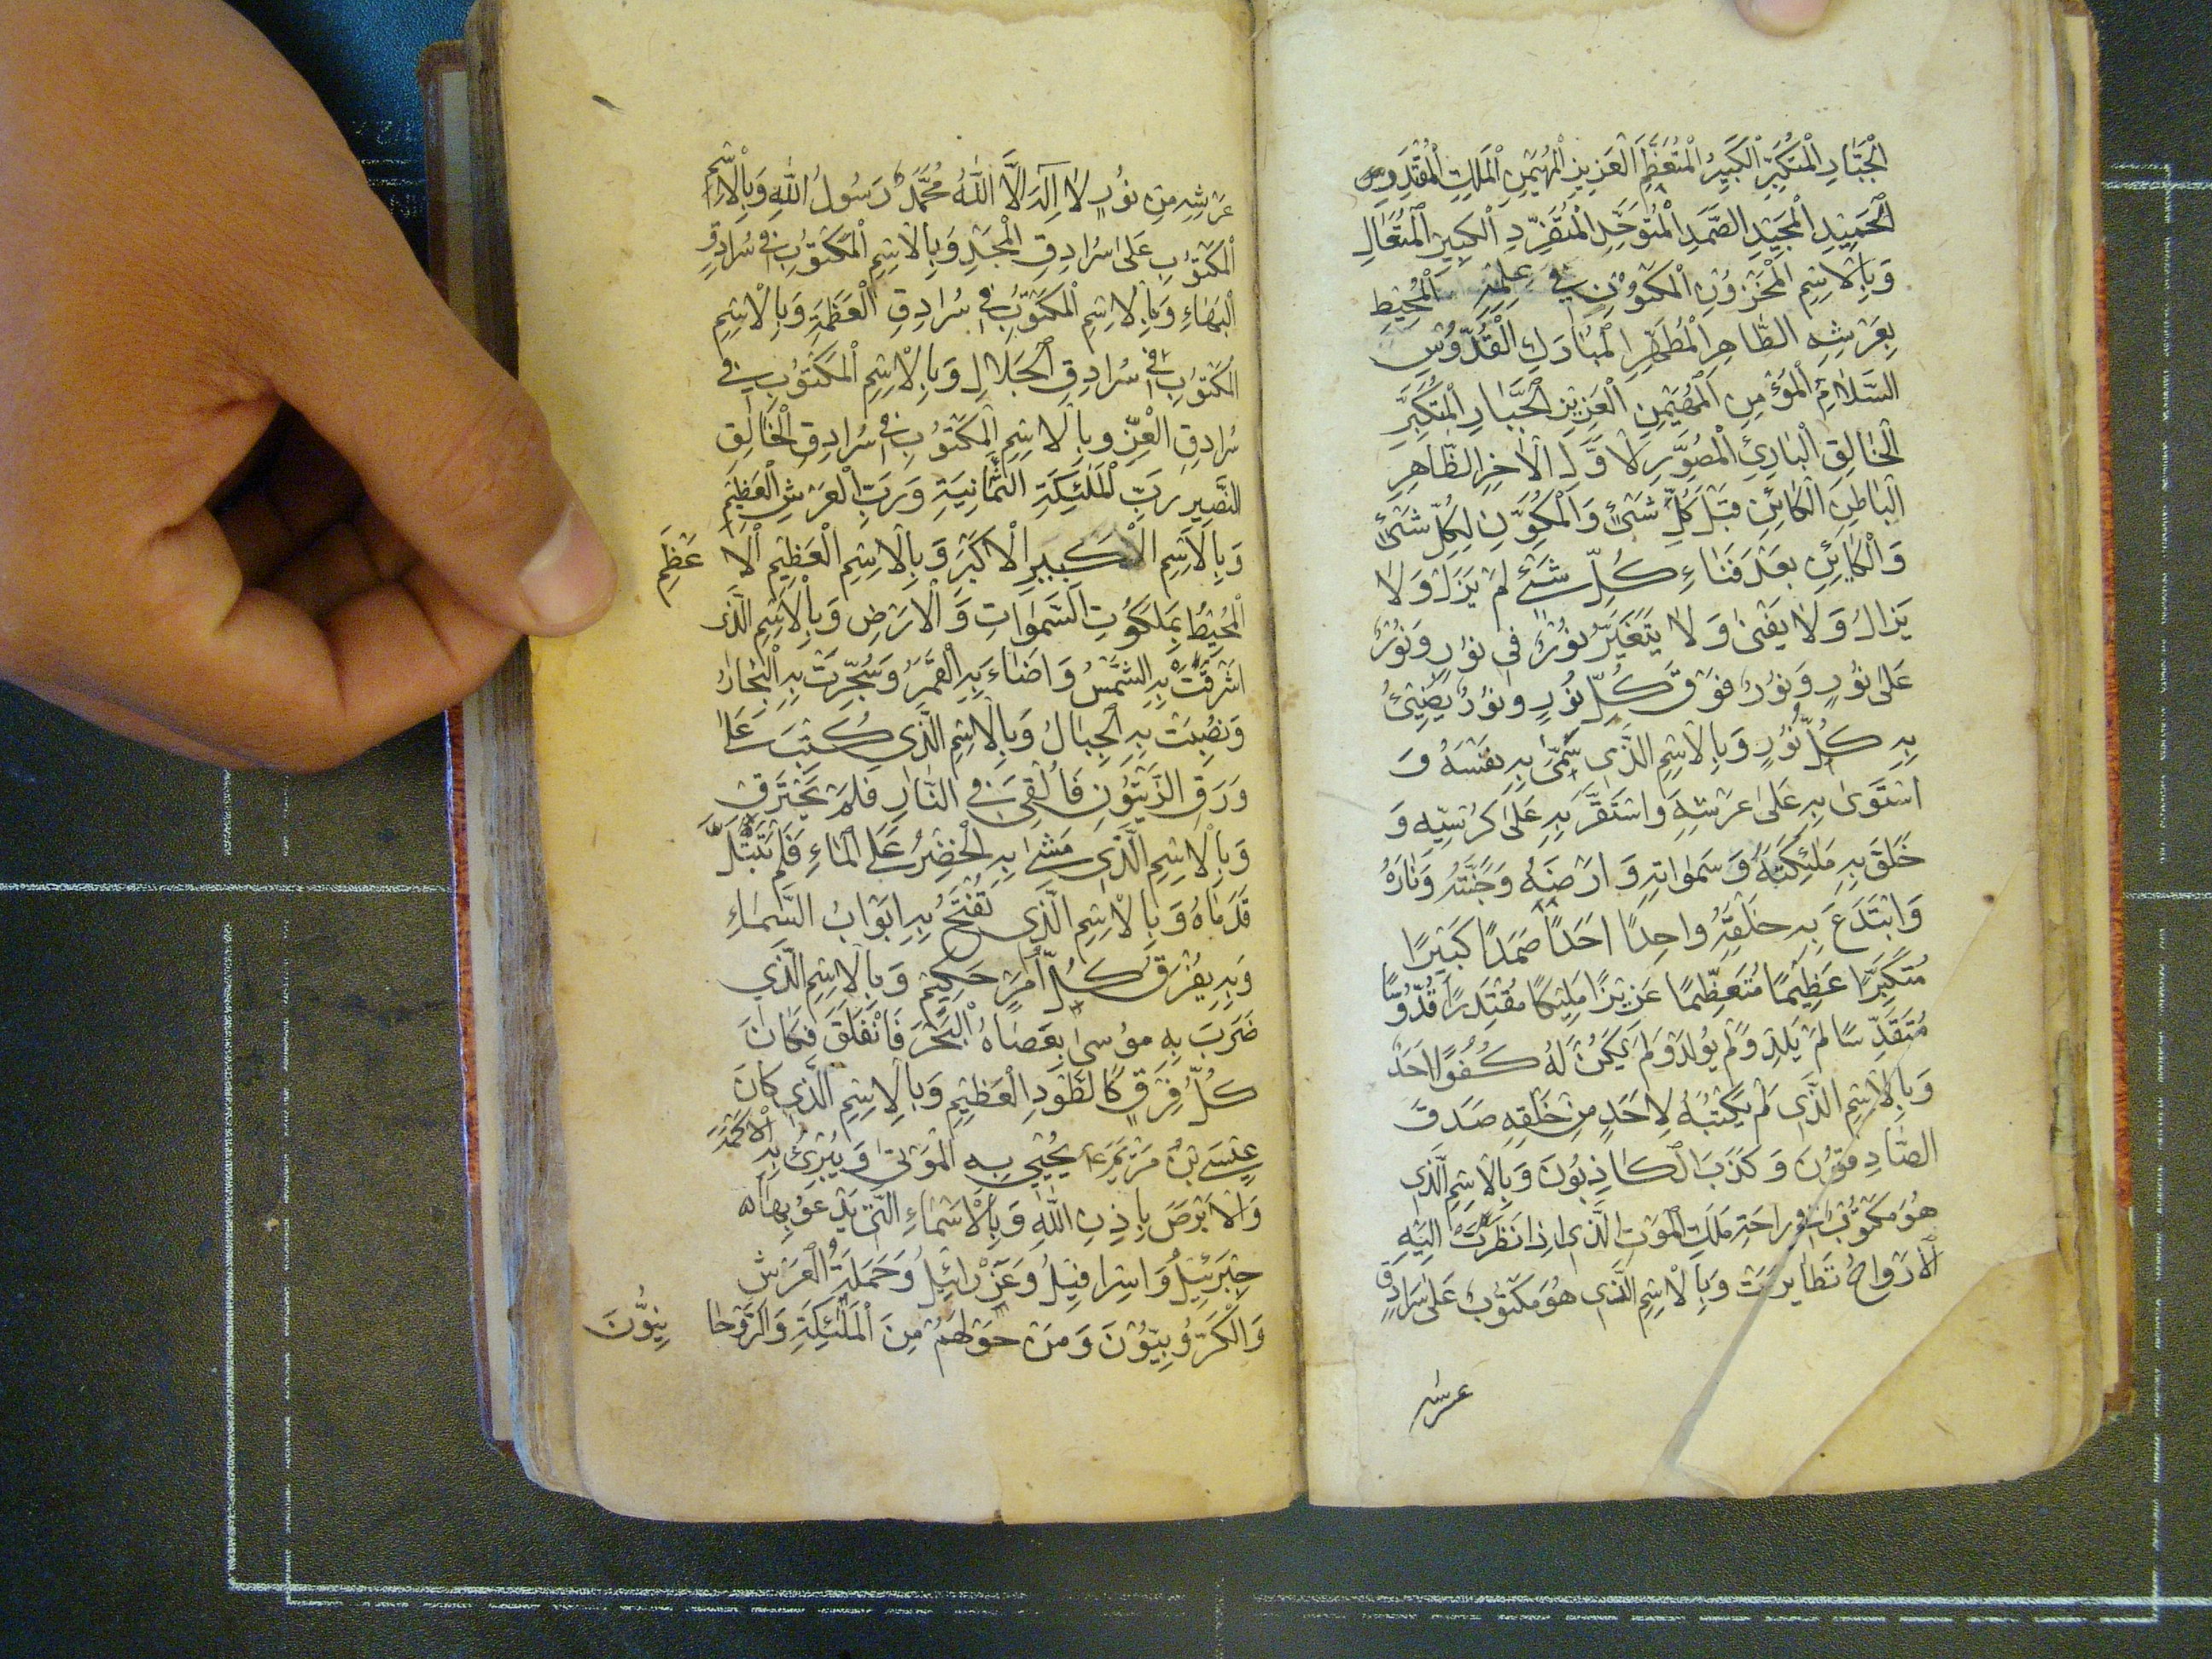 الْجَبَّارِ الْمُتَكَبِّرِ الْكَبِيرِ الْمُتَعَظِّمِ الْعَزِيزِ الْمُهَيْمِنِ الْمَلِكِ الْمُقْتَدِرِ
الْحَمِيدِ الْمَجِيدِ الصَّمَدِ الْمُتَوَحِّدِ الْمُتَفَرِّدِ الْكَبِيرِ الْمُتَعَالِ
وَبِالْاِسْمِ الْمَخْزُونِ الْمَكْنُونِ فِي عِلْمِهِ الْمُحِيطِ
بِعَرْشِهِ الطَّاهِرِ الْمُطَهَّرِ الْمُبَارَكِ الْقُدُّوسِ
السَّلَامِ الْمُؤْمِنِ الْمُهَيْمِنِ الْعَزِيزِ الْجَبَّارِ الْمُتَكَبِّرِ
الْخَالِقِ الْبَارِئِ الْمُصَوِّرِ لَاوَّلِ الْاٰخِرِ الظَّاهِرِ
الْبَاطِنِ الْكَائِنِ قَبْلَ كُلِّ شَيْءٍ وَالْمُكَوِّنِ لِكُلِّ شَيْءٍ
وَالْكَائِنِ بَعْدَ فَنَاءِ كُلِّ شَيْءٍ لَمْ يَزَلْ وَلَا
يَزَالُ وَلَا يَفْنٰى وَلَا يَتَغَيَّرُ نُوْرٌ فِي نُوْرٍ وَنُوْرٌ
عَلٰى نُوْرٍ وَنُوْرٌ فَوْقَ كُلِّ نُوْرٍ وَنُوْرٌ يُضِيْءُ
بِهِ كُلُّ نُوْرٍ وَبِالْاِسْمِ الَّذِي سَمّٰى بِهِ نَفْسَهُ وَ
اسْتَوٰى بِهِ عَلٰى عَرْشِهِ وَاسْتَقَرَّ بِهِ عَلٰى كُرْسِيِّهِ وَ
خَلَقَ بِهِ مَلٰئِكَتَهُ وَسَمٰوَاتِهِ وَارْضَهُ وَجَنَّتَهُ وَنَارَهُ
وَابْتَدَعَ بِهِ خَلْقَهُ وَاحِدًا اَحَدًا صَمَدًا كَبِيْرًا
مُتَكَبِّرًا عَظِيْمًا مُتَعَظِّمًا عَزِيْزًا مَلِيْكًا مُقْتَدِرًا قُدُّوْسًا
مُتَقَدِّسًا لَمْ يَلِدْ وَلَمْ يُوْلَدْ وَلَمْ يَكُنْ لَهُ كُفُوًا اَحَدٌ
وَبِالْاِسْمِ الَّذِي لَمْ يَكْتُبْهُ لِاَحَدٍ مِنْ خَلْقِهِ صَدَقَ
الصَّادِقُوْنَ وَكَذَبَ الْكَاذِبُوْنَ وَبِالْاِسْمِ الَّذِي
هُوَ مَكْتُوْبٌ فِي رَاحَةِ مَلَكِ الْمَوْتِ الَّذِي اِذَا نَظَرَتْ اِلَيْهِ
الْاَرْوَاحُ تَطَايَرَتْ وَبِالْاِسْمِ الَّذِي هُوَ مَكْتُوْبٌ عَلٰى سُرَادِقِ
عرشه
عَرْشِهِ مِنْ نُوْرٍ لَا اِلٰهَ اِلَّا اللّٰهُ مُحَمَّدٌ رَسُوْلُ اللّٰهِ وَبِالْاِسْمِ
الْمَكْتُوْبِ عَلٰى سُرَادِقِ الْمَجْدِ وَبِالْاِسْمِ الْمَكْتُوْبِ فِي سُرَادِقِ
الْبَهَاءِ وَبِالْاِسْمِ الْمَكْتُوْبِ فِي سُرَادِقِ الْعَظَمَةِ وَبِالْاِسْمِ
الْمَكْتُوْبِ فِي سُرَادِقِ الْجَلَالِ وَبِالْاِسْمِ الْمَكْتُوْبِ فِي
سُرَادِقِ الْعِزِّ وَبِالْاِسْمِ الْمَكْتُوْبِ فِي سُرَادِقِ الْخَالِقِ
النَّصِيرِ رَبِّ الْمَلٰئِكَةِ الثَّمَانِيَةِ وَرَبِّ الْعَرْشِ الْعَظِيْمِ
وَبِالْاِسْمِ الْاَكَبِيرِ الْاَكْبَرِ وَبِالْاِسْمِ الْعَظِيْمِ الْاَعْظَمِ
الْمُحِيْطِ بِمَلَكُوْتِ السَّمٰوَاتِ وَالْاَرْضِ وَبِالْاِسْمِ الَّذِي
اَشْرَقَتْ بِهِ الشَّمْسُ وَاَضَاءَ بِهِ الْقَمَرُ وَسُجِّرَتْ بِهِ الْبِحَارُ
وَنُصِبَتْ بِهِ الْجِبَالُ وَبِالْاِسْمِ الَّذِي كُتِبَ عَلٰى
وَرَقِ الزَّيْتُوْنِ فَاُلْقِيَ فِي النَّارِ فَلَمْ يَحْتَرِقْ
وَبِالْاِسْمِ الَّذِي مَشٰى بِهِ الْخِضِرُ عَلَى الْمَاءِ فَلَمْ تَبْتَلَّ
قَدَمَاهُ وَبِالْاِسْمِ الَّذِي تُفْتَحُ بِهِ اَبْوَابُ السَّمَاءِ
وَبِهِ يُفْرَقُ كُلُّ اَمْرٍ حَكِيْمٍ وَبِالْاِسْمِ الَّذِي
ضَرَبَ بِهِ مُوْسٰى بِعَصَاهُ الْبَحْرَ فَانْفَلَقَ فَكَانَ
كُلُّ فِرْقٍ كَالطَّوْدِ الْعَظِيْمِ وَبِالْاِسْمِ الَّذِي كَانَ
عِيْسَى بْنُ مَرْيَمَ يُحْيِي بِهِ الْمَوْتٰى وَيُبْرِئُ بِهِ الْاَكْمَهَ
وَالْاَبْرَصَ بِاِذْنِ اللّٰهِ وَبِالْاَسْمَاءِ الَّتِي يَدْعُوْ بِهَا
جِبْرَئِيْلُ وَاِسْرَافِيْلُ وَعَزْرَائِيْلُ وَحَمَلَةُ الْعَرْشِ
وَالْكَرُّوْبِيُّوْنَ وَمَنْ حَوْلَهُمْ مِنَ الْمَلٰئِكَةِ وَالرَّوْحَانِيُّوْنَ